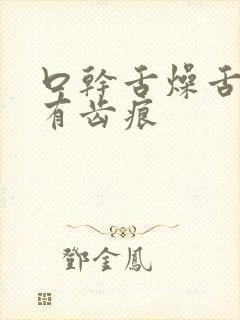 口幹舌燥舌
有齿痕
鄧金鳳